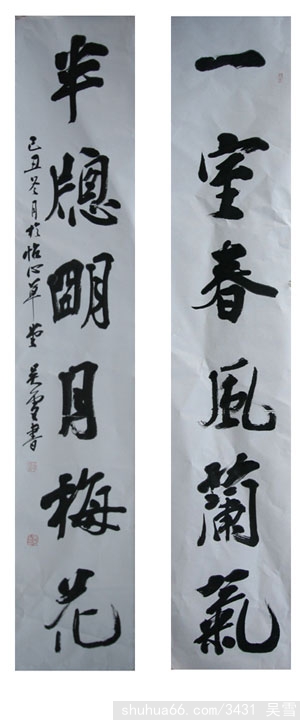 一室春風蘭氣
半牕明月梅花
己丑冬月於怡心草堂 吴雪書
shuhua66.com/3431 吴雪